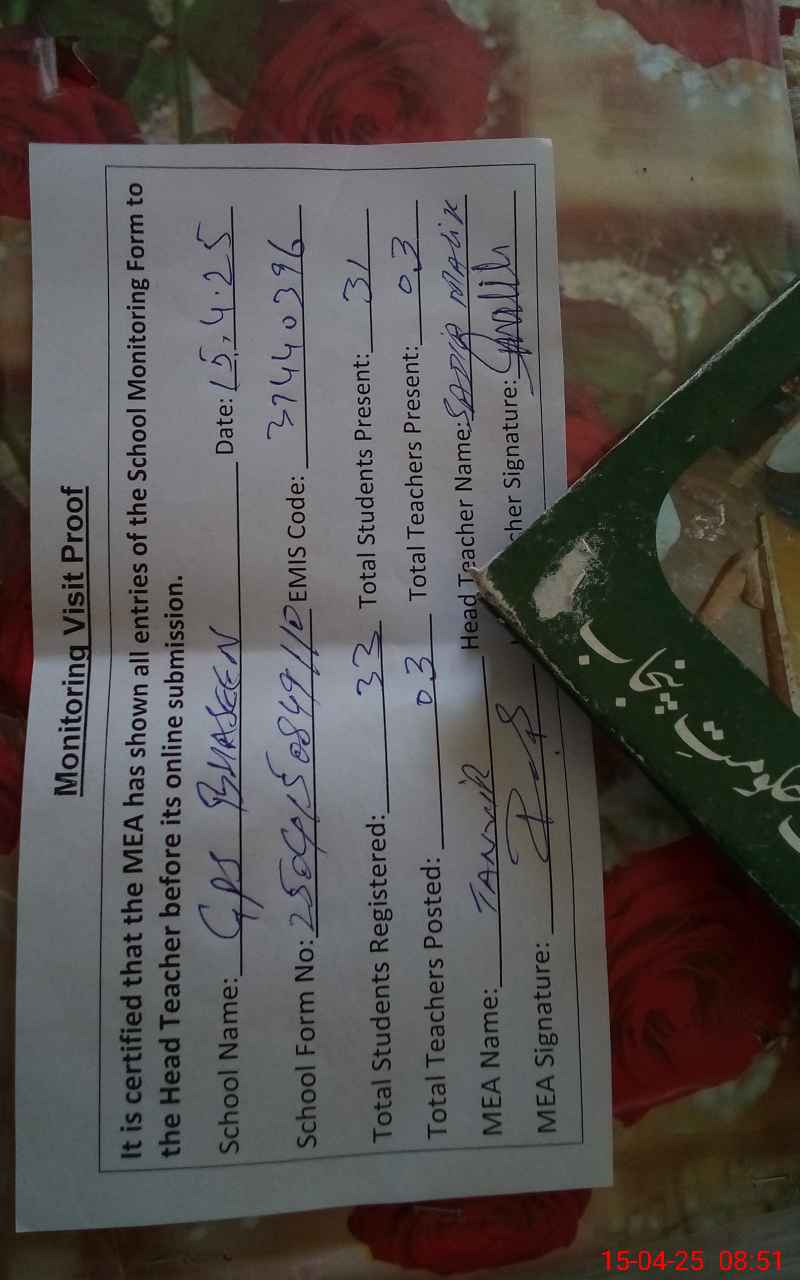 Monitoring Visit Proof
It is certified that the MEA has shown all entries of the School Monitoring Form to
the Head Teacher before its online submission.
School Name: GPS BHASEEN Date: 15.4.25
School Form No: EMIS Code: 37440396
Total Students Registered: 33 Total Students Present: 31
Total Teachers Posted: 03 Total Teachers Present: 03
MEA Name: TANVIR Head Teacher Name: MALIK
MEA Signature: cher Signature:
حکومتِ پنجاب
15-04-25 08:51